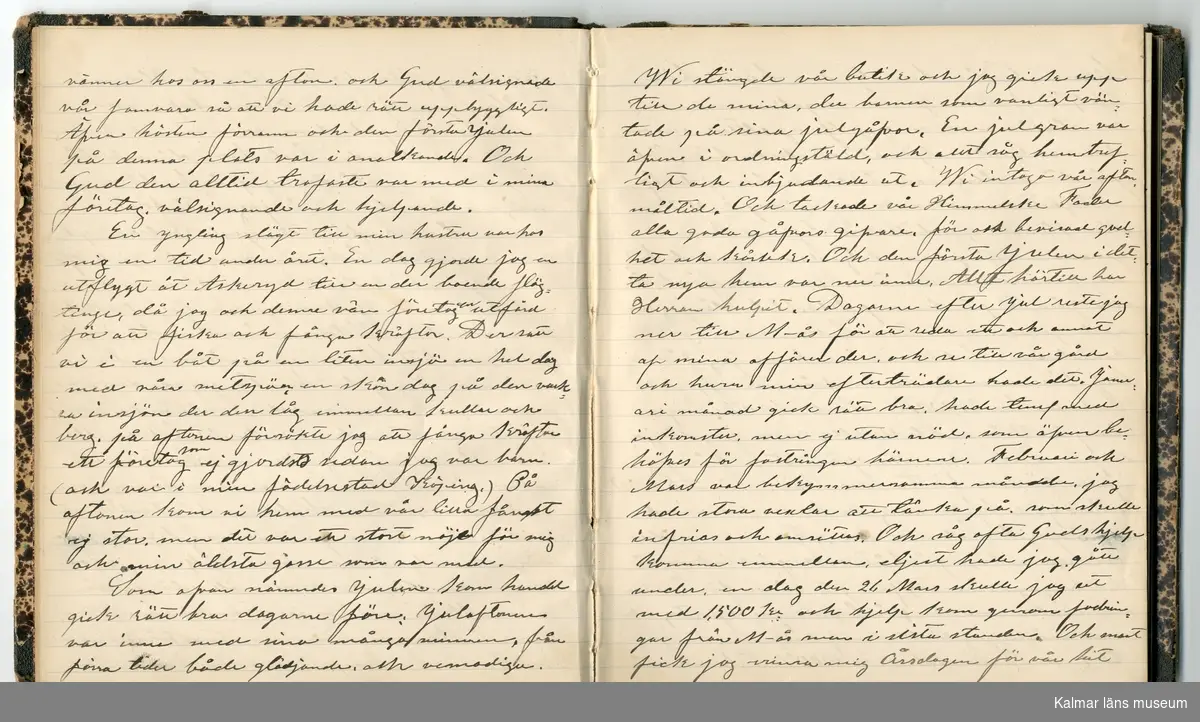 vänner hos oss en afton. och Gud välsignade
vår samvara så att vi hade rätt uppbyggligt.
Äfven hösten försvann och den första julen
på denna plats var i anallkande. Och
Gud den alltid trofaste var med i mina
företag. välsignande och hjelpande.
En yngling slägt till min hustru var hos
mig en tid under året. En dag gjorde jag en
utflygt åt Askeryd till en der boende släg-
tinge, då jag och denne vän företog en utfärd
för att fiska och fånga kräftor. Der satt
vi i en båt på en liten insjö en hel dag
med våra metspön, en skön dag på den vack-
ra insjön der den låg emmellan kullar och
berg. på aftonen försökte jag att fånga kräftor
ett företag som ej gjordts sedan jag var barn.
(och var i min födelsestad Köping.) På
aftonen kom vi hem med vår lilla fångst
ej stor. men det var ett stort nöje för mig
och min äldsta gosse som var med.
Som ofvan nämndes Julen kom handel
gick rätt bra dagarne före. Julaftonen
var inne med sina många minnen, från
förra tider både glädjande. och vemodiga.
Wi stängde vår butik och jag gick upp
till de mina, der barnen som vanligt vän-
tade på sina julgåfvor. En julgran var
äfven i ordningstäld, och allt såg hemtref-
ligt och inbjudande ut. Wi intogo vår afton
måltid. Och tackade vår Himmelske Fader
alla goda gåfvors gifvare. för oss bevisad god-
het och kärlek. Och den första Julen i det-
ta nya hem var nu inne. Allt härtill har
Herran hulpit. Dagarne efter Jul reste jag
ner till M-ås för att reda ett och annat
af mina affärer der. och se till vår gård
och huru min efterträdare hade det. Janu-
ari månad gick rätt bra. hade med
inkomster, men ej utan nöd. som äfven be-
höfves för fostringen härnere. Februari och
Mars var bekymmersamma månader. jag
hade stora vexlar att tänka på. som skulle
infrias och omsättas. Och såg ofta Guds hjelp
komma emmellan, eljest hade jag gått
under. en dag den 26 Mars skulle jag ut
med 1,500 Kr och hjelp kom genom fordrin-
gar från M-ås men i sista stunden. Och snart
fick jag vinna mig Årsdagen för vår hit
Kalmar läns museum